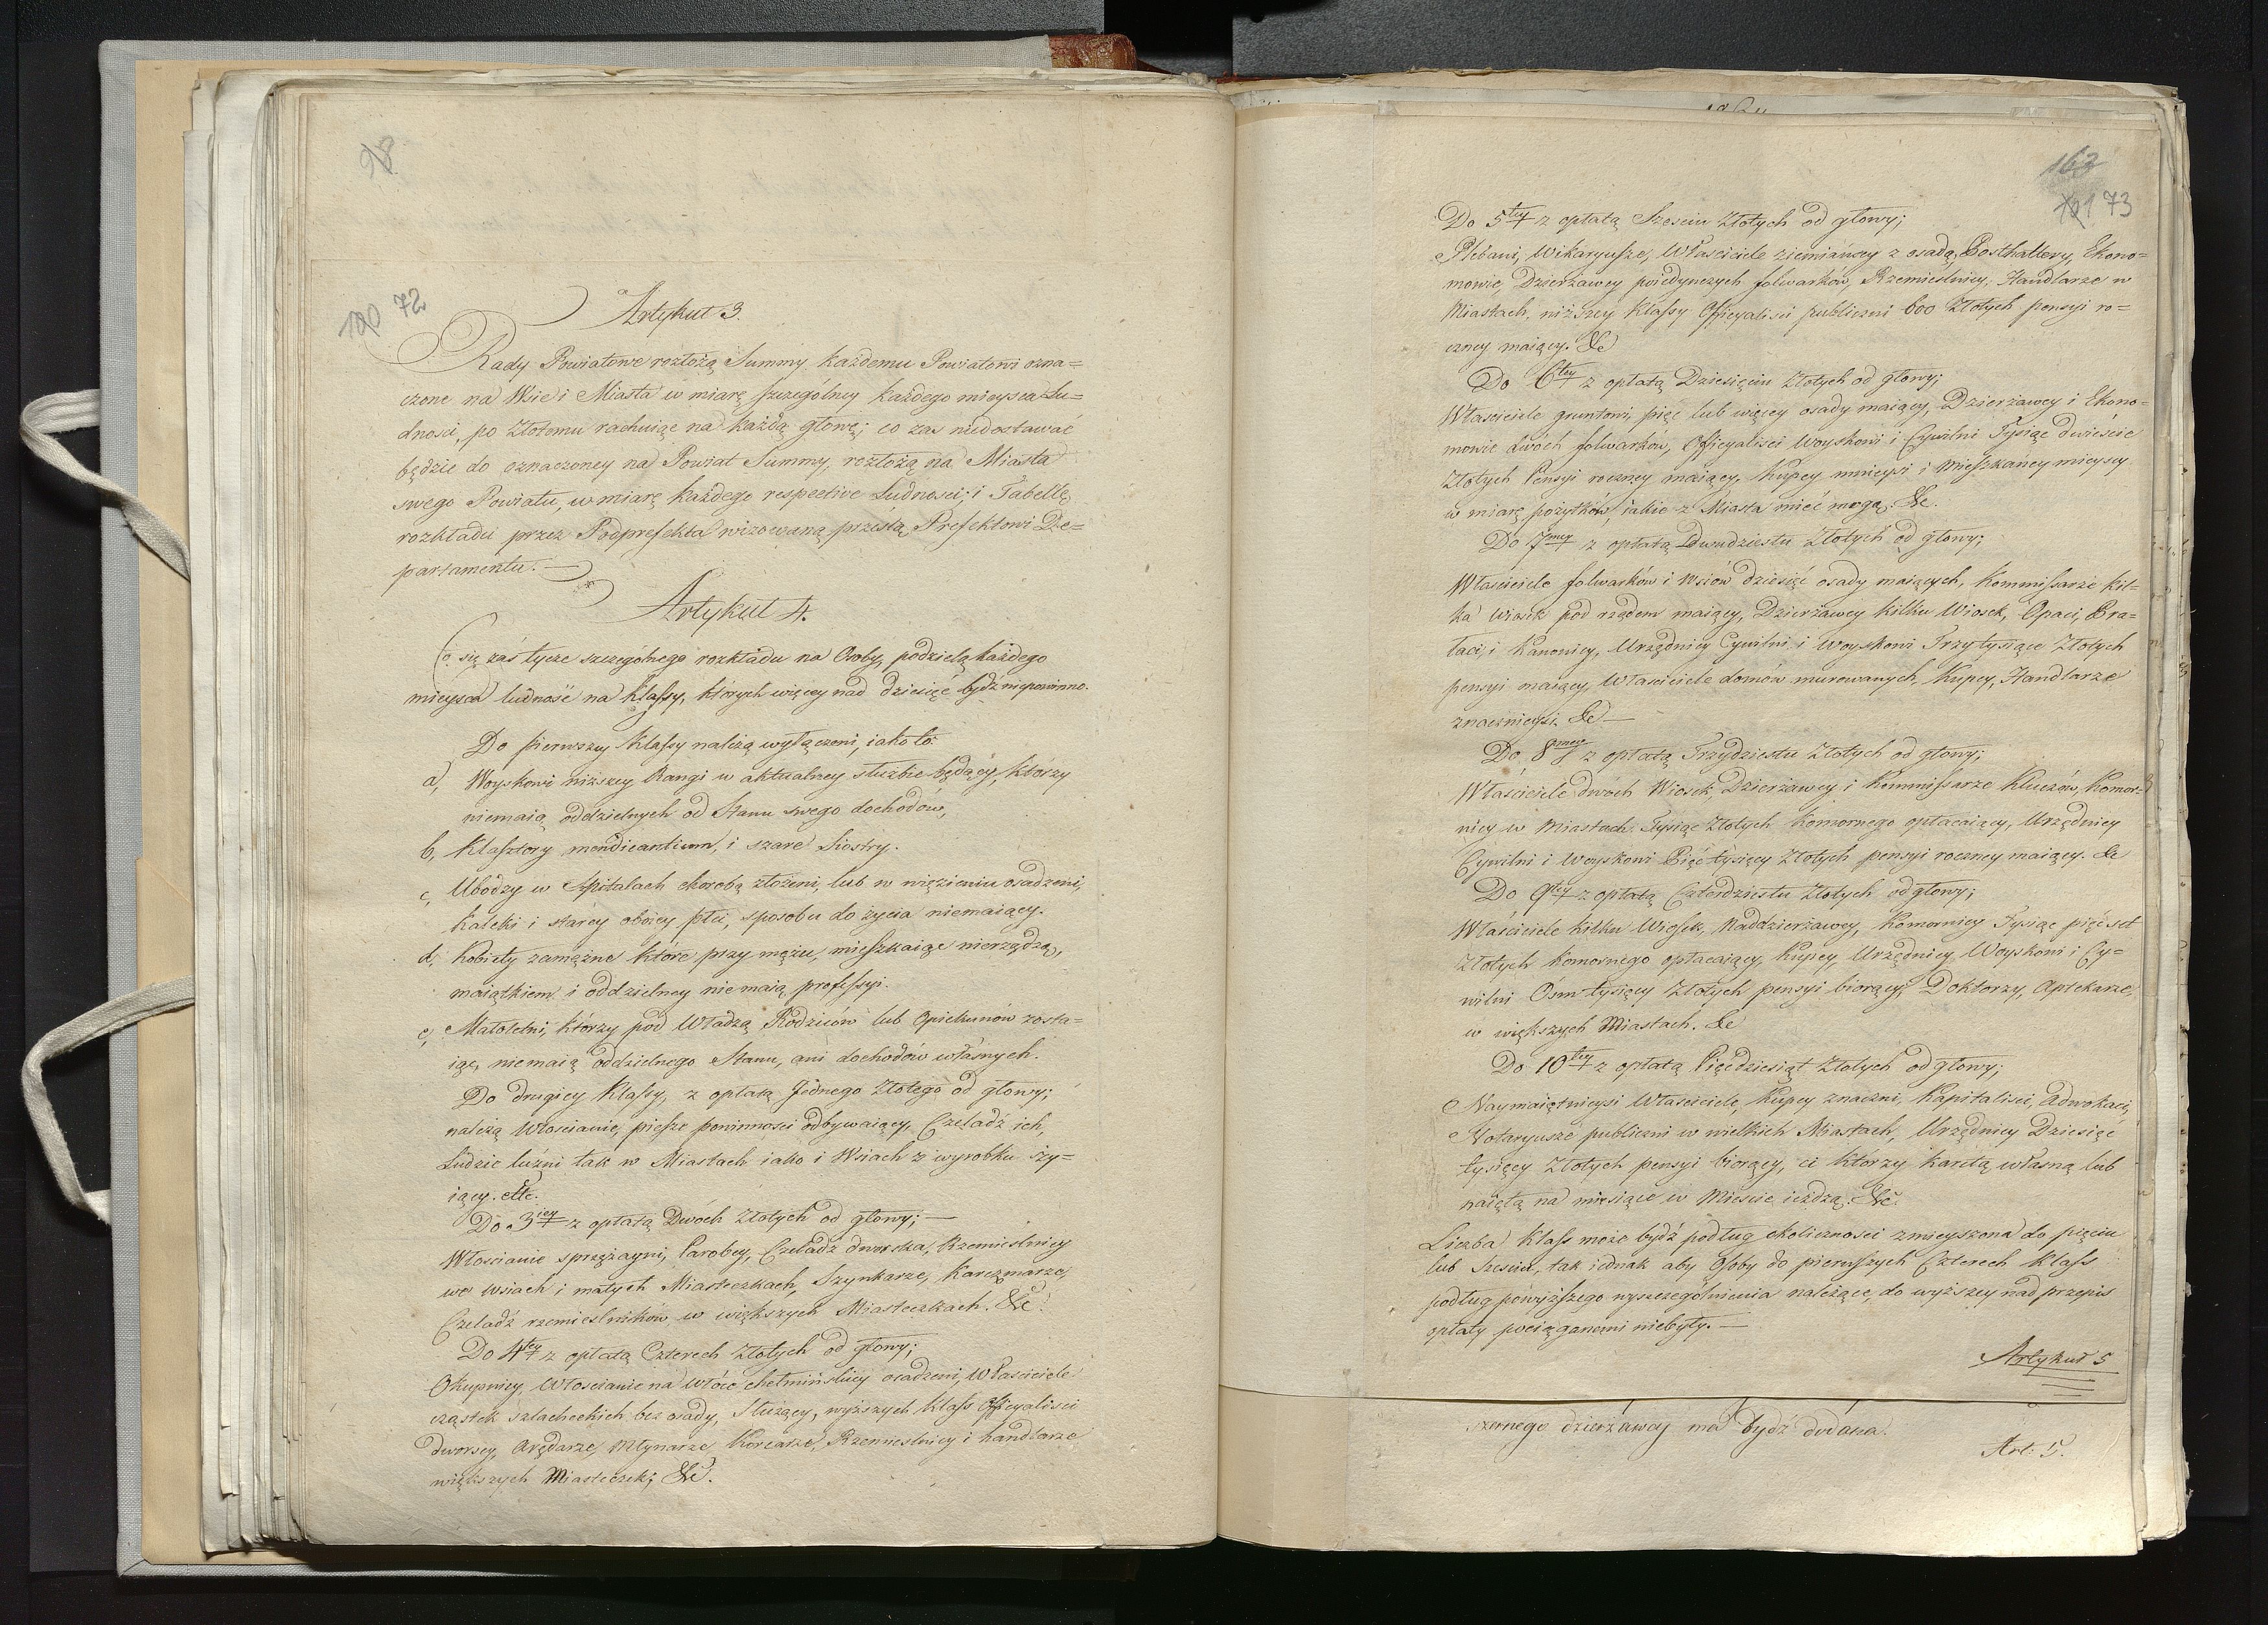 98
100 72
Artykuł 3.
Rady Powiatowe rozłożą Summy każdemu Powiatowi ozna=
czone na Wsie i Miasta w miarę szczególney każdego mieysca Lu=
dności, po Złotemu rachuiąc na każdą głowę; co zas niedostawać
będzie do oznaczoney na Powiat Summy, rozłożą na Miasta
swego Powiatu, w miarę każdego respective Ludnosci; i Tabellę
rozkładu przez Podprefekta wizowaną prześlą Prefektowi De=
partamentu. —
Artykuł 4.
Co się zaś tycze szczegolnego rozkładu na Osoby, podzielą każdego
mieysca ludność na Klassy, których więcey nad dziesięć bydź niepowinno.
Do pierwszey Klassy należą wyłączeni, iako to:
a, Woyskowi niższey Rangi w aktualney służbie będący, którzy
niemaią oddzielnych od Stanu swego dochodów,
b, Klasztory mendicantium, i szare Siostry.
c, Ubodzy w Szpitalach chorobą złożeni, lub w więzieniu osadzeni,
Kaleki i starcy oboiey płci, sposobu do życia niemaiący.
d, Kobiety zamężne które przy mężu, mieszkaiąc nierządzą,
maiątkiem i oddzielney nie maią professyi.
e, Małoletni, którzy pod Władzą Rodziców lub Opiekunów zosta=
iąc, niemaią oddzielnego Stanu, ani dochodów własnych.
Do drugiey Klassy, z opłatą Jednego Złotego od głowy;
należą Włoscianie, piesze powinnosci odbywaiący, Czeladź ich,
Ludzie luźni tak w Miastach iako i Wsiach z wyrobku ży=
iący. etc.
Do 3iey z opłatą Dwóch Złotych od głowy; —
Włoscianie sprzężayni, Parobcy, Czeladź dworska, Rzemieslnicy
we wsiach i małych Miasteczkach, Szynkarze, Karczmarze,
Czeladź rzemieslników w większych Miasteczkach. &c.
Do 4tey z opłatą Czterech Złotych od głowy;
Okupnicy, Włoscianie na włóce chełmińskiey osadzeni, Właściciele
cząstek szlacheckich bez osady, Służący, wyższych klass Officyalisci
dworscy, Arędarze, Młynarze, Korcarze, Rzemieslnicy i handlarze
większych Miasteczek; &c.
163
101 73
Do 5tey z opłatą Szesciu Złotych od głowy;
Plebani, Wikaryusze, Właściciele ziemiańscy z osadą, Posthaltery, Ekono=
mowie, Dzierżawcy poiedynczych folwarków, Rzemieslnicy, Handlarze w
Miastach, niższey Klassy Officyalisci publiczni 600 Złotych pensyi ro=
czney maiący. &c
Do 6tey z opłatą Dziesięciu Złotych od głowy;
Właściciele gruntowi, pięć lub więcey osady maiący, Dzierżawcy i Ekono=
mowie dwóch folwarków, Officyalisci Woyskowi i Cywilni Tysiąc dwieście
Złotych Pensyi roczney maiący, Kupcy mnieysi i Mieszkańcy mieyscy
w miarę pożytków, iakie z Miasta mieć mogą. &c.
Do 7mey z opłatą Dwudziestu Złotych od głowy;
Właściciele folwarków i wsiów dziesięć osady maiących, Kommissarze kil=
ka wiosek pod rządem maiący, Dzierżawcy kilku Wiosek, Opaci, Pra=
łaci, i Kanonicy, Urzędnicy Cywilni i Woyskowi Trzy tysiące Złotych
pensyi maiący, Właściciele domów murowanych, Kupcy, Handlarze
znacznieysi. &c —
Do 8mey z opłatą Trzydziestu Złotych od głowy;
Właściciele dwóch Wiosek, Dzierżawcy i Kommissarze Kluczów, Komor=
nicy w Miastach Tysiąc Złotych Komornego opłacaiący, Urzędnicy
Cywilni i Woyskowi Pięć tysięcy Złotych pensyi roczney maiący. &c
Do 9tey z opłatą Czterdziestu Złotych od głowy;
Właściciele kilku Wiosek, Naddzierżawcy, Komornicy Tysiąc pięćset
Złotych komornego opłacaiący, Kupcy, Urzędnicy Woyskowi i Cy=
wilni Osm tysięcy Złotych pensyi biorący, Doktorzy, Aptekarze,
w większych Miastach. &c
Do 10tey z opłatą Pięćdziesiąt Złotych od głowy;
Naymaiętnieysi Właściciele, Kupcy znaczni, Kapitalisci, Adwokaci,
Notaryusze publiczni w wielkich Miastach, Urzędnicy Dziesięć
tysięcy Złotych pensyi biorący, ci którzy karetą własną lub
naiętą na miesiące w Miescie ieżdzą. &c.
Liczba Klass może bydź podług okoliczności zmnieyszona do pięciu
lub Szesciu, tak iednak aby Osoby do pierwszych Czterech Klass
podług powyższego wyszczególnienia należące, do wyższey nad przepis
opłaty pociąganemi niebyły. —
Artykuł 5
czernego dzierżawcy ma bydź dodana.
Art: 5.